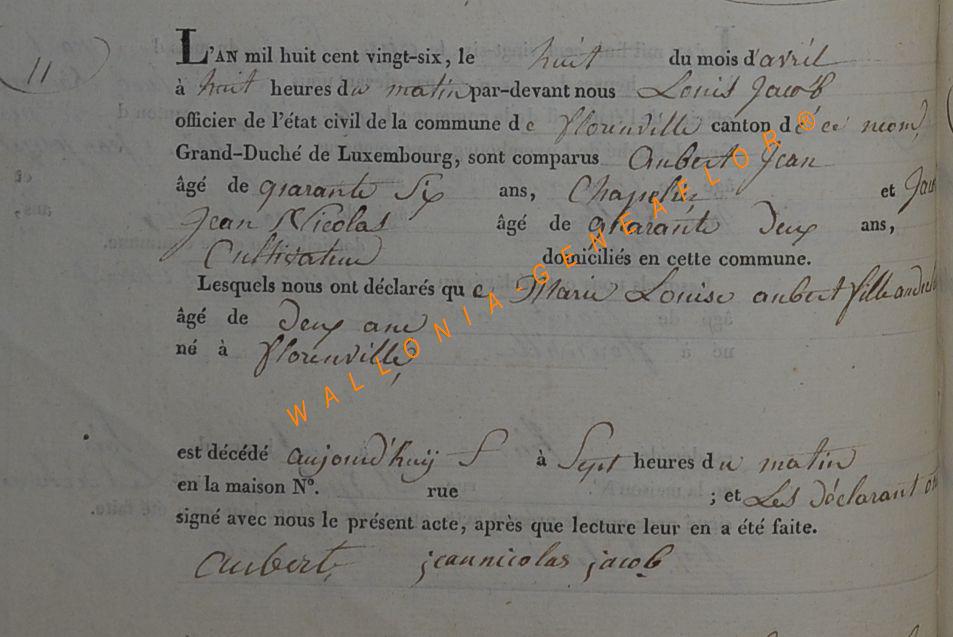 11
L'AN mil huit cent vingt-six, le huit du mois d'avril
à huit heures du matin par-devant nous Louis Jacob
officier de l'état civil de la commune de florenville canton de ce nom,
Grand-Duché de Luxembourg, sont comparus aubert Jean
âgé de quarante Six ans, Chapelier et
Jean Nicolas âgé de quarante Deux ans,
Cultivateur domiciliés en cette commune.
Lesquels nous ont déclarés que Marie Louise aubert fille
âgé de Deux ans
né à florenville,
est décédé aujourd'huy à Sept heures du matin
en la maison N°. rue ; et Les déclarant ont
signé avec nous le présent acte, après que lecture leur en a été faite.
aubert, jeannicolas jacob
WALLONIA-GENEAFLOR®